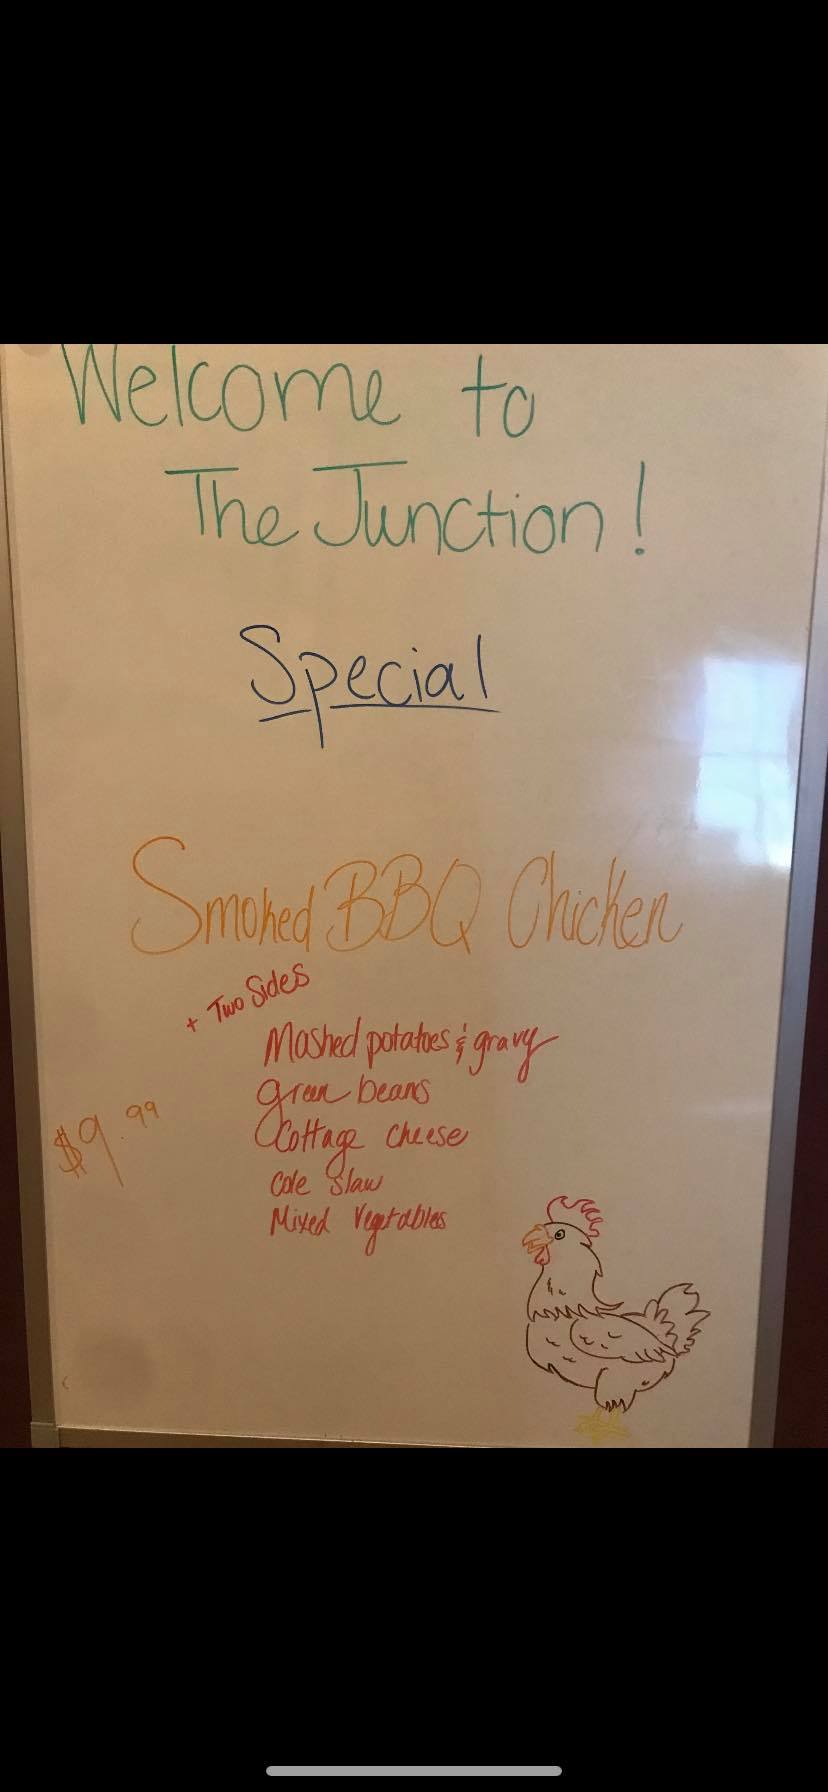 Welcome to
The Junction!
Special
Smoked BBQ Chicken
+ Two Sides
Mashed potatoes & gravy
green beans
$9.99
Cottage cheese
Cole Slaw
Mixed Vegetables